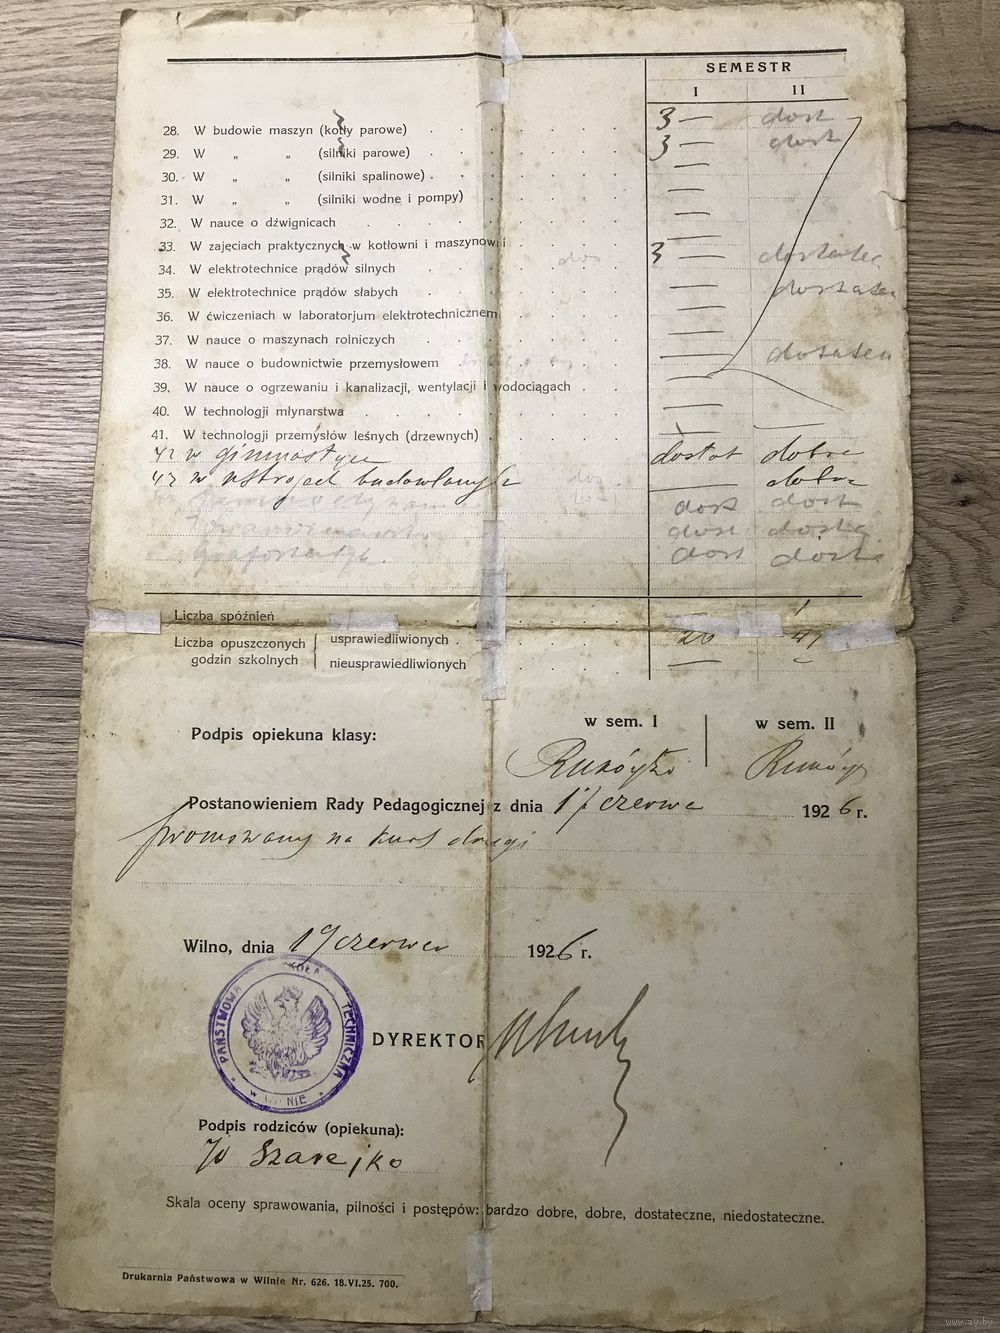 SEMESTR
I II
28. W budowie maszyn (kotły parowe) 3 — dost
29. W „ „ (silniki parowe) 3 — dost
30. W „ „ (silniki spalinowe) —
31. W „ „ (silniki wodne i pompy) —
32. W nauce o dźwignicach —
33. W zajęciach praktycznych w kotłowni i maszynowni —
34. W elektrotechnice prądów silnych 3 —
35. W elektrotechnice prądów słabych —
36. W ćwiczeniach w laboratorjum elektrotechnicznem —
37. W nauce o maszynach rolniczych —
38. W nauce o budownictwie przemysłowem —
39. W nauce o ogrzewaniu i kanalizacji, wentylacji i wodociągach —
40. W technologji młynarstwa —
41. W technologji przemysłów leśnych (drzewnych) —
42 w gimnastyce dostat dobre
43 w ustrojach budowlanych —
dost dost
dost
dost
Liczba spóźnień
Liczba opuszczonych godzin szkolnych
usprawiedliwionych
nieusprawiedliwionych —
w sem. I w sem. II
Podpis opiekuna klasy:
Postanowieniem Rady Pedagogicznej z dnia 17 czerwca 1926 r.
promowany na kurs drugi
Wilno, dnia 19 czerwca 1926 r.
PAŃSTWOWA SZKOŁA TECHNICZNA W WILNIE
DYREKTOR
Podpis rodziców (opiekuna):
Szarejko
Skala oceny sprawowania, pilności i postępów: bardzo dobre, dobre, dostateczne, niedostateczne.
Drukarnia Państwowa w Wilnie Nr. 626. 18.VI.25. 700.
www.ay.by